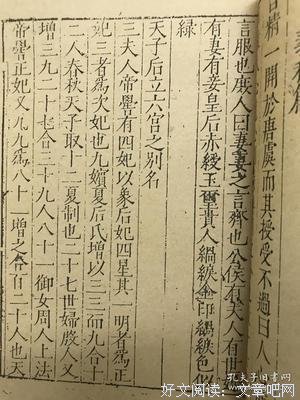 言精一開於唐虞而其授受不過曰人
言服也庶人曰妻妻之言齊也公侯有夫人有世
有妻有妾皇后赤綬玉璽貴人綟金印綟綬名似
緑
天子后立六宫之别名
三夫人帝嚳有四妃以象后妃四星其一明者為正
妃三者為次妃也九嬪夏后氏增以三三而九合十
二人春秋天子取十二夏制也二十七世婦殷人又
增三九二十七合三十九人八十一御女周人上法
帝嚳正妃又九九為八十一增之合百二十人也天
孔夫子旧书网
好文阅读：文章吧网